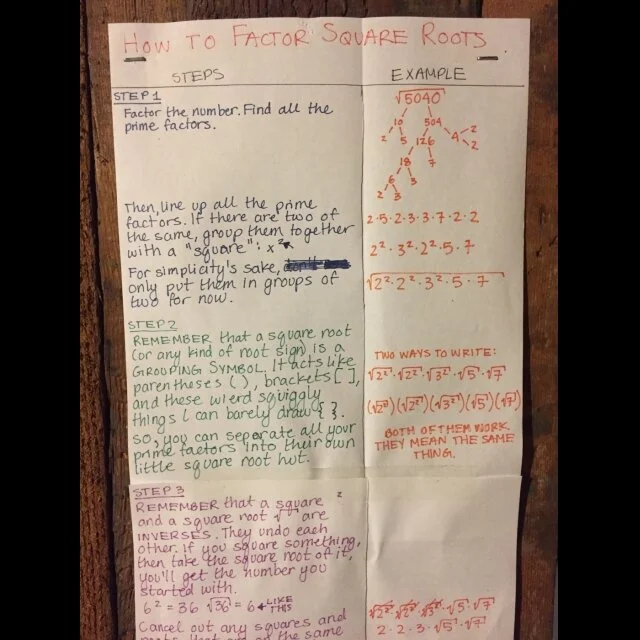 HOW TO FACTOR SQUARE ROOTS
STEPS
EXAMPLE
STEP 1
Factor the number. Find all the
prime factors.
√5040
10 504
2 5 126 4 2
2
18 7
6 3
2 3
Then, line up all the prime
factors. If there are two of
the same, group them together
with a "square": x²
For simplicity's sake,
only put them in groups of
two for now.
2·5·2·3·3·7·2·2
2²·3²·2²·5·7
√2²·2²·3²·5·7
STEP 2
REMEMBER that a square root
(or any kind of root sign) is a
GROUPING SYMBOL. It acts like
parentheses ( ), brackets [ ],
and these wierd squiggly
things I can barely draw { }.
So, you can separate all your
prime factors into their own
little square root hut.
TWO WAYS TO WRITE:
√2²·√2²·√3²·√5·√7
(√2²)(√2²)(√3²)(√5)(√7)
BOTH OF THEM WORK.
THEY MEAN THE SAME
THING.
STEP 3
REMEMBER that a square ²
and a square root √ are
INVERSES. They undo each
other. If you square something,
then take the square root of it,
you'll get the number you
started with.
6² = 36 √36 = 6 ← LIKE
THIS
Cancel out any squares and
are on the same
√2²·√2²·√3²·√5·√7
2·2·3·√5·√7